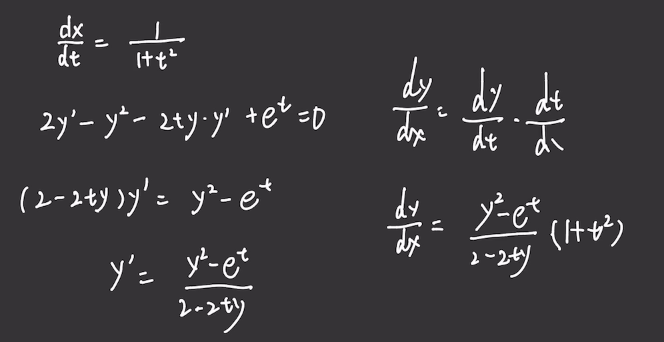 dx/dt = 1/(1+t²)
2y' - y² - 2ty·y' + e^t = 0
(2-2ty)y' = y² - e^t
y' = (y²-e^t)/(2-2ty)
dy/dx = dy/dt · dt/dx
dy/dx = (y²-e^t)/(2-2ty) (1+t²)